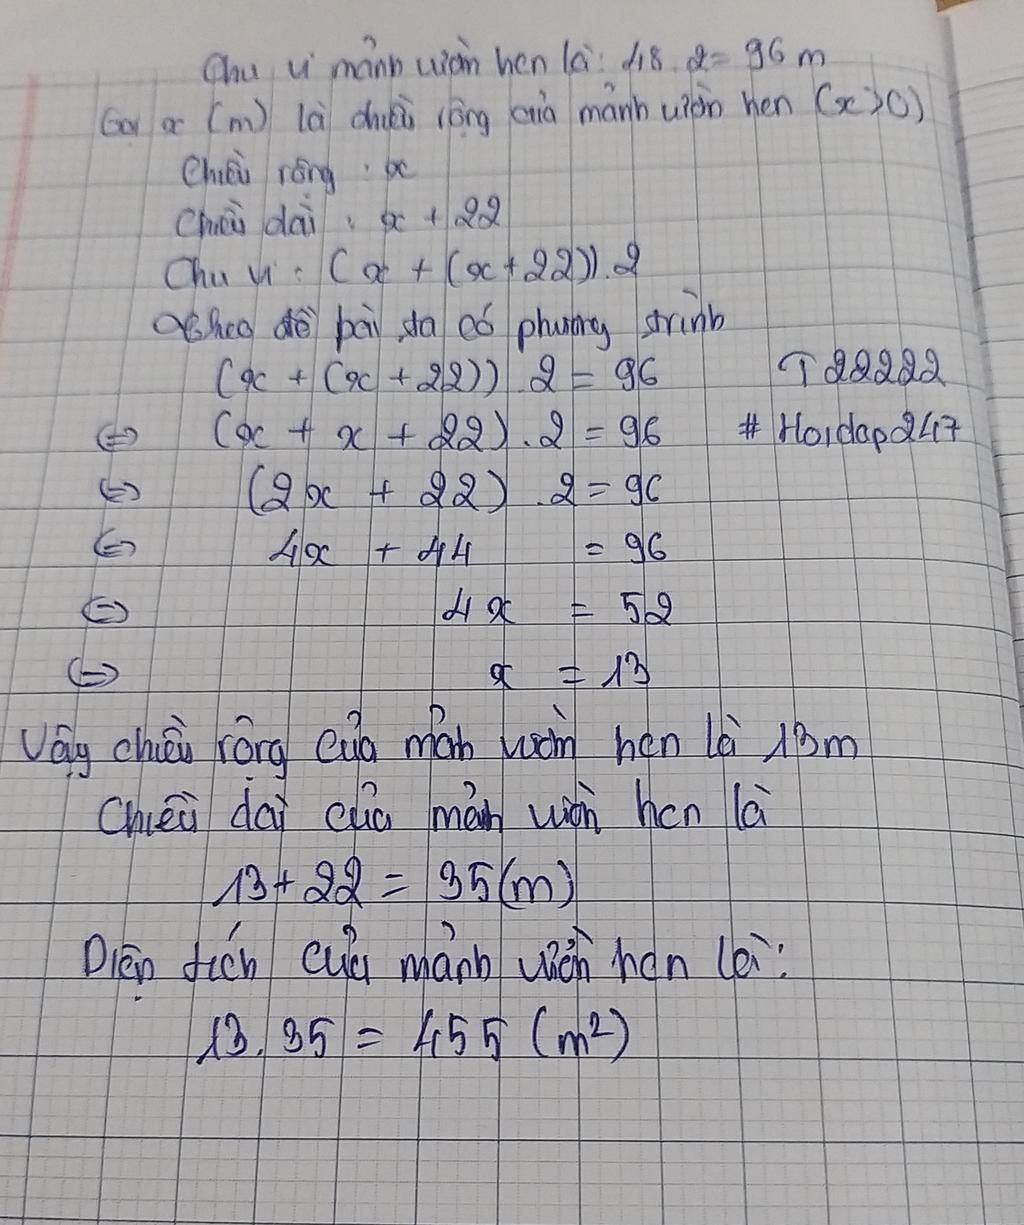 Chu vi mảnh vườn hcn là: 48.2= 96 m
Gọi x (m) là chiều rộng của mảnh vườn hcn (x>0)
Chiều rộng : x
Chiều dài : x + 22
Chu vi : (x + (x+22)).2
Theo đề bài ta có phương trình
(x + (x + 22)).2 = 96 T22222
⇔ (x + x + 22).2 = 96 # Hoidap247
⇔ (2x + 22).2 = 96
⇔ 4x + 44 = 96
⇔ 4x = 52
⇔ x = 13
Vậy chiều rộng của mảnh vườn hcn là 13m
Chiều dài của mảnh vườn hcn là
13+22 = 35(m)
Diện tích của mảnh vườn hcn là:
13.35 = 455 (m²)